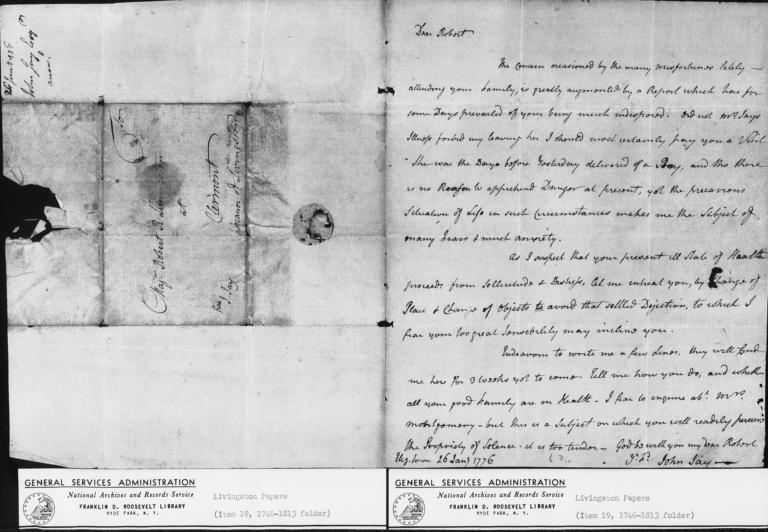 26 Jan 1776
John Jay Esqr
answ.
To
Robert R. Livingston
at
Clermont
Manor of Livingston
free J. Jay
Dear Robert
The Concern occasioned by the many misfortunes lately
attending your Family, is greatly augmented by a Report which has for
some Days prevailed of your being much indisposed. Did not Mrs. Jays
Illness forbid my leaving her I should most certainly pay you a Visit
She was the Day before Yesterday delivered of a Boy, and tho there
is no Reason to apprehend Danger at present, yet the precarious
Situation of Life in such Circumstances makes me the Subject of
many Fears & much anxiety.
As I suspect that your present ill State of Health
proceeds from Sollicitude & Distress, let me entreat you, by Change of
Place & Change of Objects to avoid that settled Dejection, to which I
fear your too great Sensibility may incline you.
Endeavour to write me a few Lines, they will find
me here for 3 Weeks yet to come. Tell me how you do, and whether
all your good Family are in Health - I fear to enquire abt. Mrs.
Montgomery - but this is a Subject on which you will readily perceive
the Propriety of Silence - it is too tender - God be with you my Dear Robert
Eliz. Town 26 Jany 1776 Yr. &c. John Jay
GENERAL SERVICES ADMINISTRATION
National Archives and Records Service
FRANKLIN D. ROOSEVELT LIBRARY
HYDE PARK, N. Y.
Livingston Papers
(Item 19, 1746-1813 folder)
GENERAL SERVICES ADMINISTRATION
National Archives and Records Service
FRANKLIN D. ROOSEVELT LIBRARY
HYDE PARK, N. Y.
Livingston Papers
(Item 19, 1746-1813 folder)